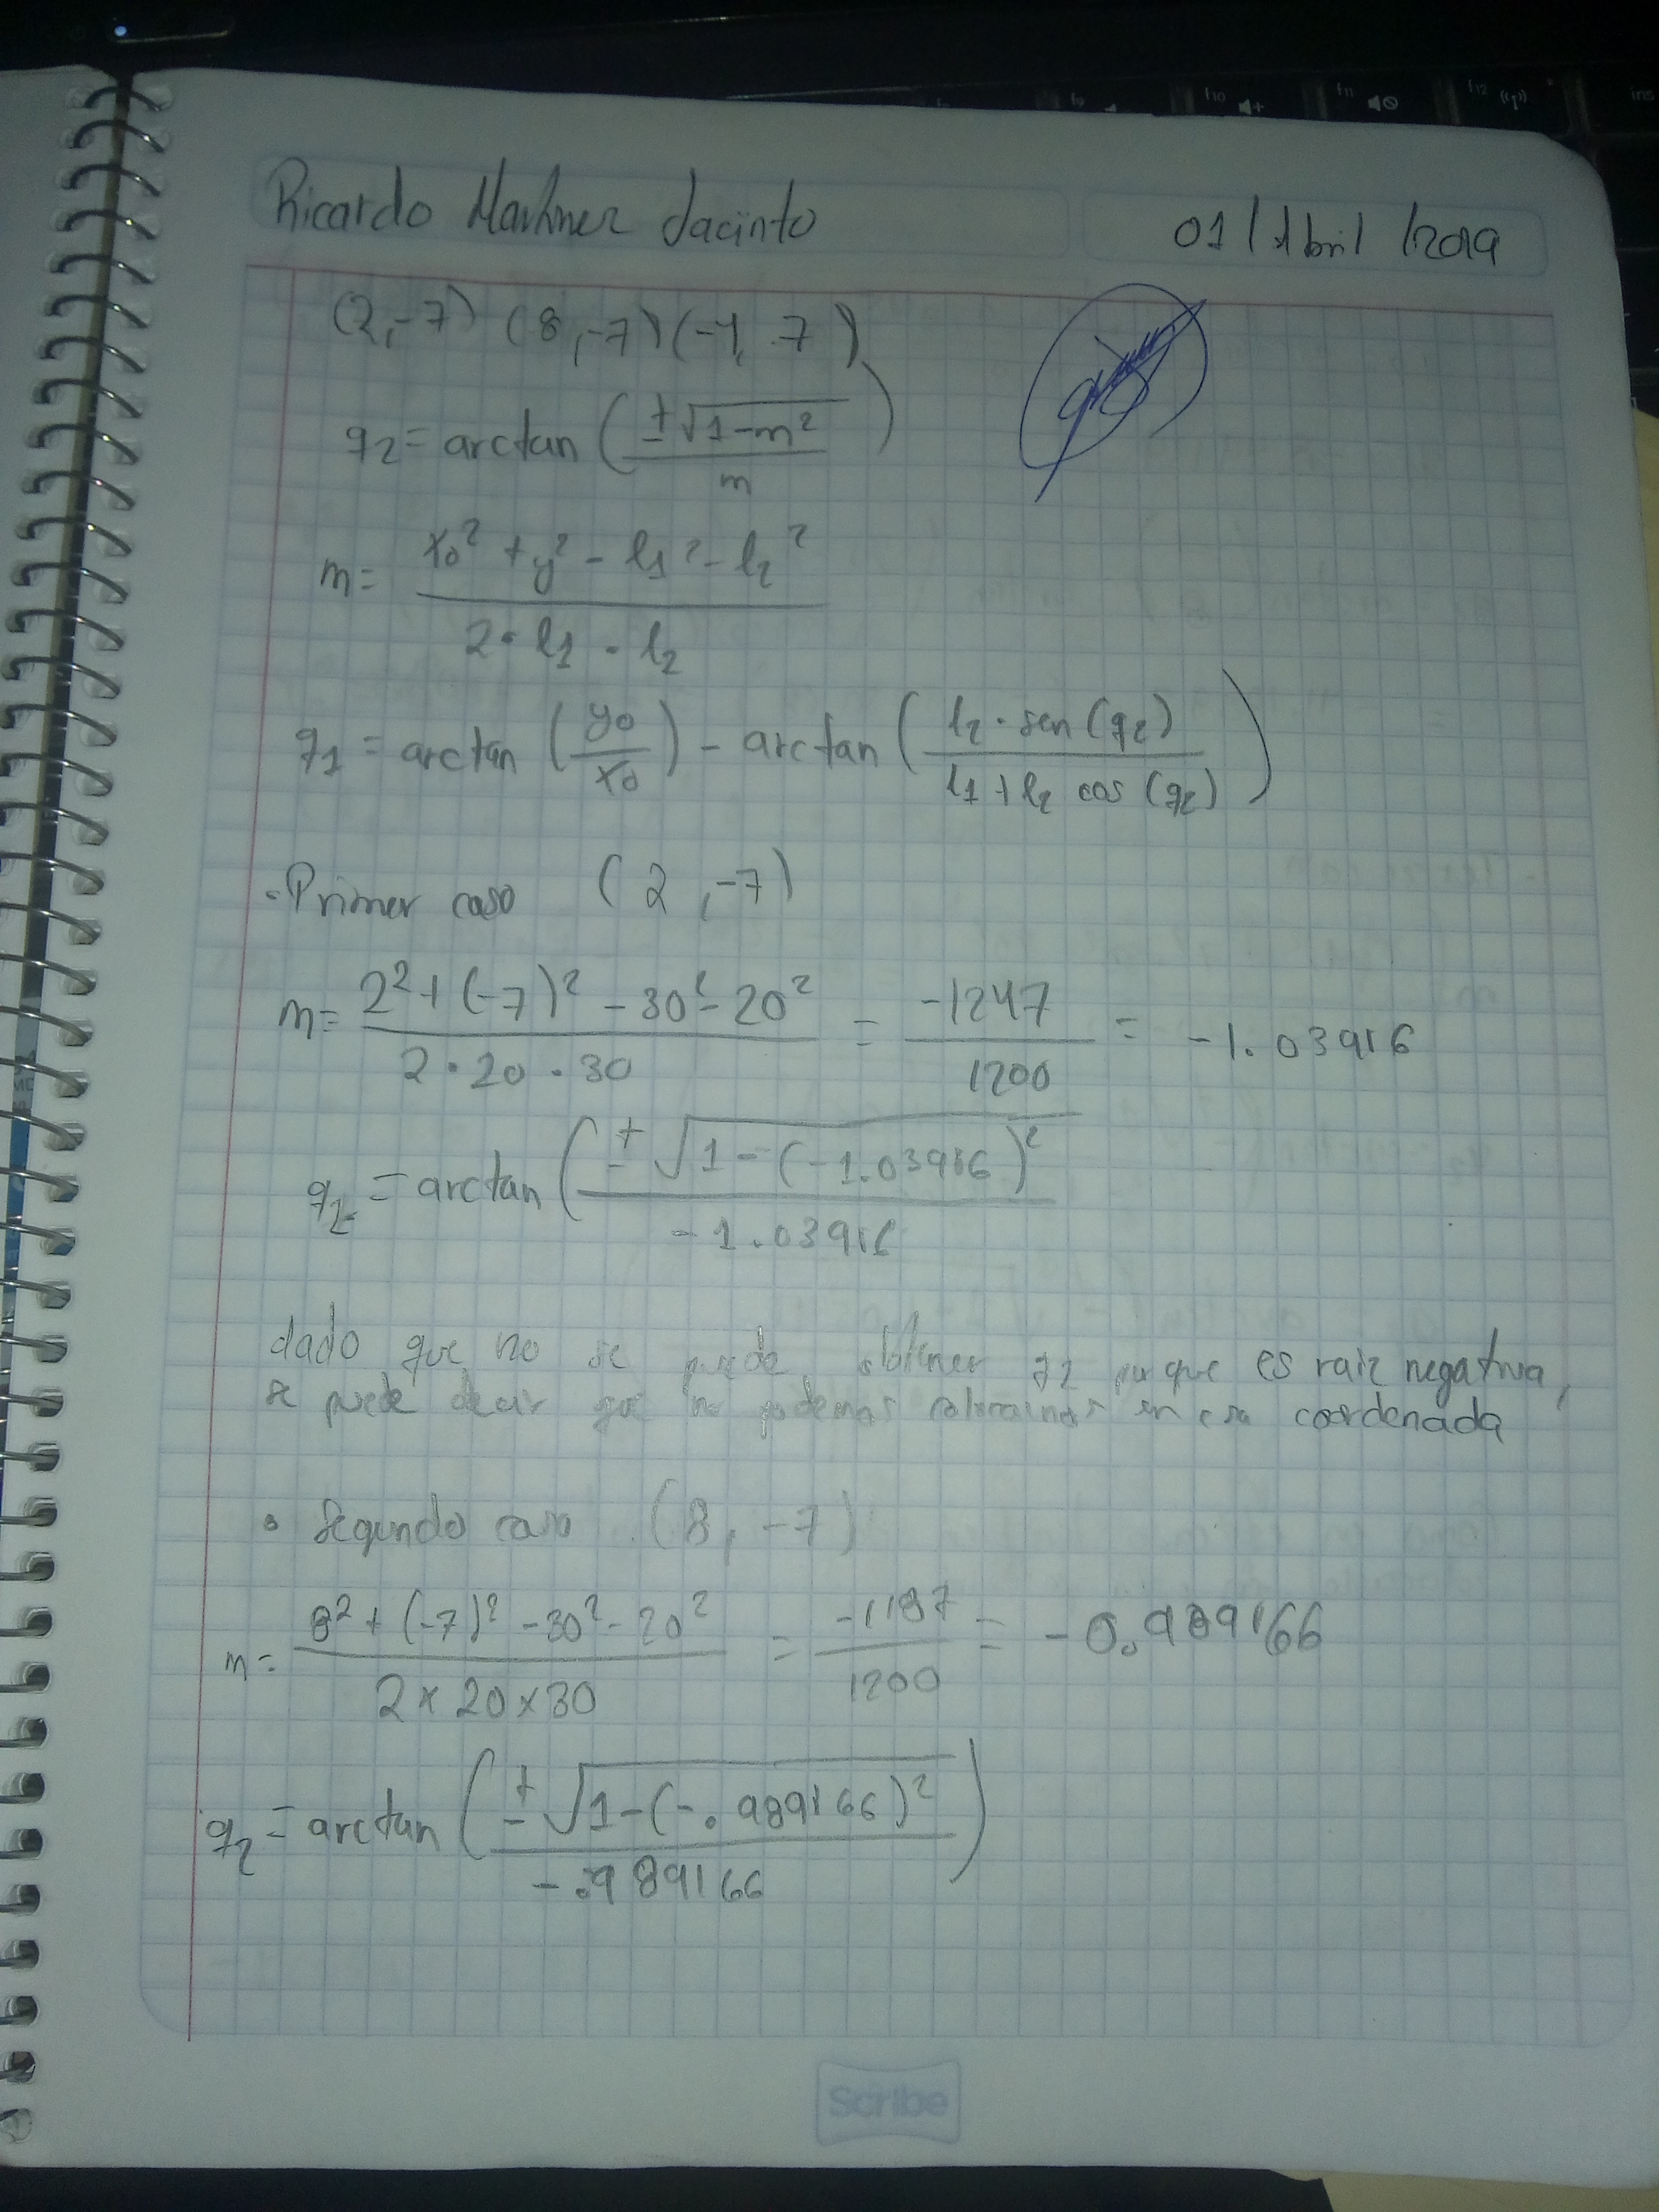 Ricardo Martinez Jacinto 01/Abril/2019
(2,-7) (8,-7) (-1, 7)
q2 = arctan (±√1-m² / m)
m = x0² + y² - l1² - l2² / 2·l1·l2
q1 = arctan (y0 / x0) - arctan (l2·sen(q2) / l1+l2 cos(q2))
·Primer caso (2,-7)
m = 2²+(-7)²-30²-20² / 2·20·30 = -1247 / 1200 = -1.03916
q2 = arctan (±√1-(-1.03916)² / -1.03916
dado que no se puede obtener q2 porque es raiz negativa,
se puede decir que no podemos colocarnos en esa coordenada
• Segundo caso (8,-7)
m = 8²+(-7)²-30²-20² / 2×20×30 = -1187 / 1200 = -0.989166
q2 = arctan (±√1-(-.989166)² / -.989166)
Scribe